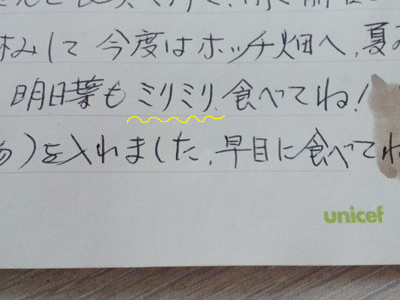 みして 今度はホッチ畑へ、夏
明日葉も ミリミリ、食べてね!
)を入れました、早目に食べてね
unicef